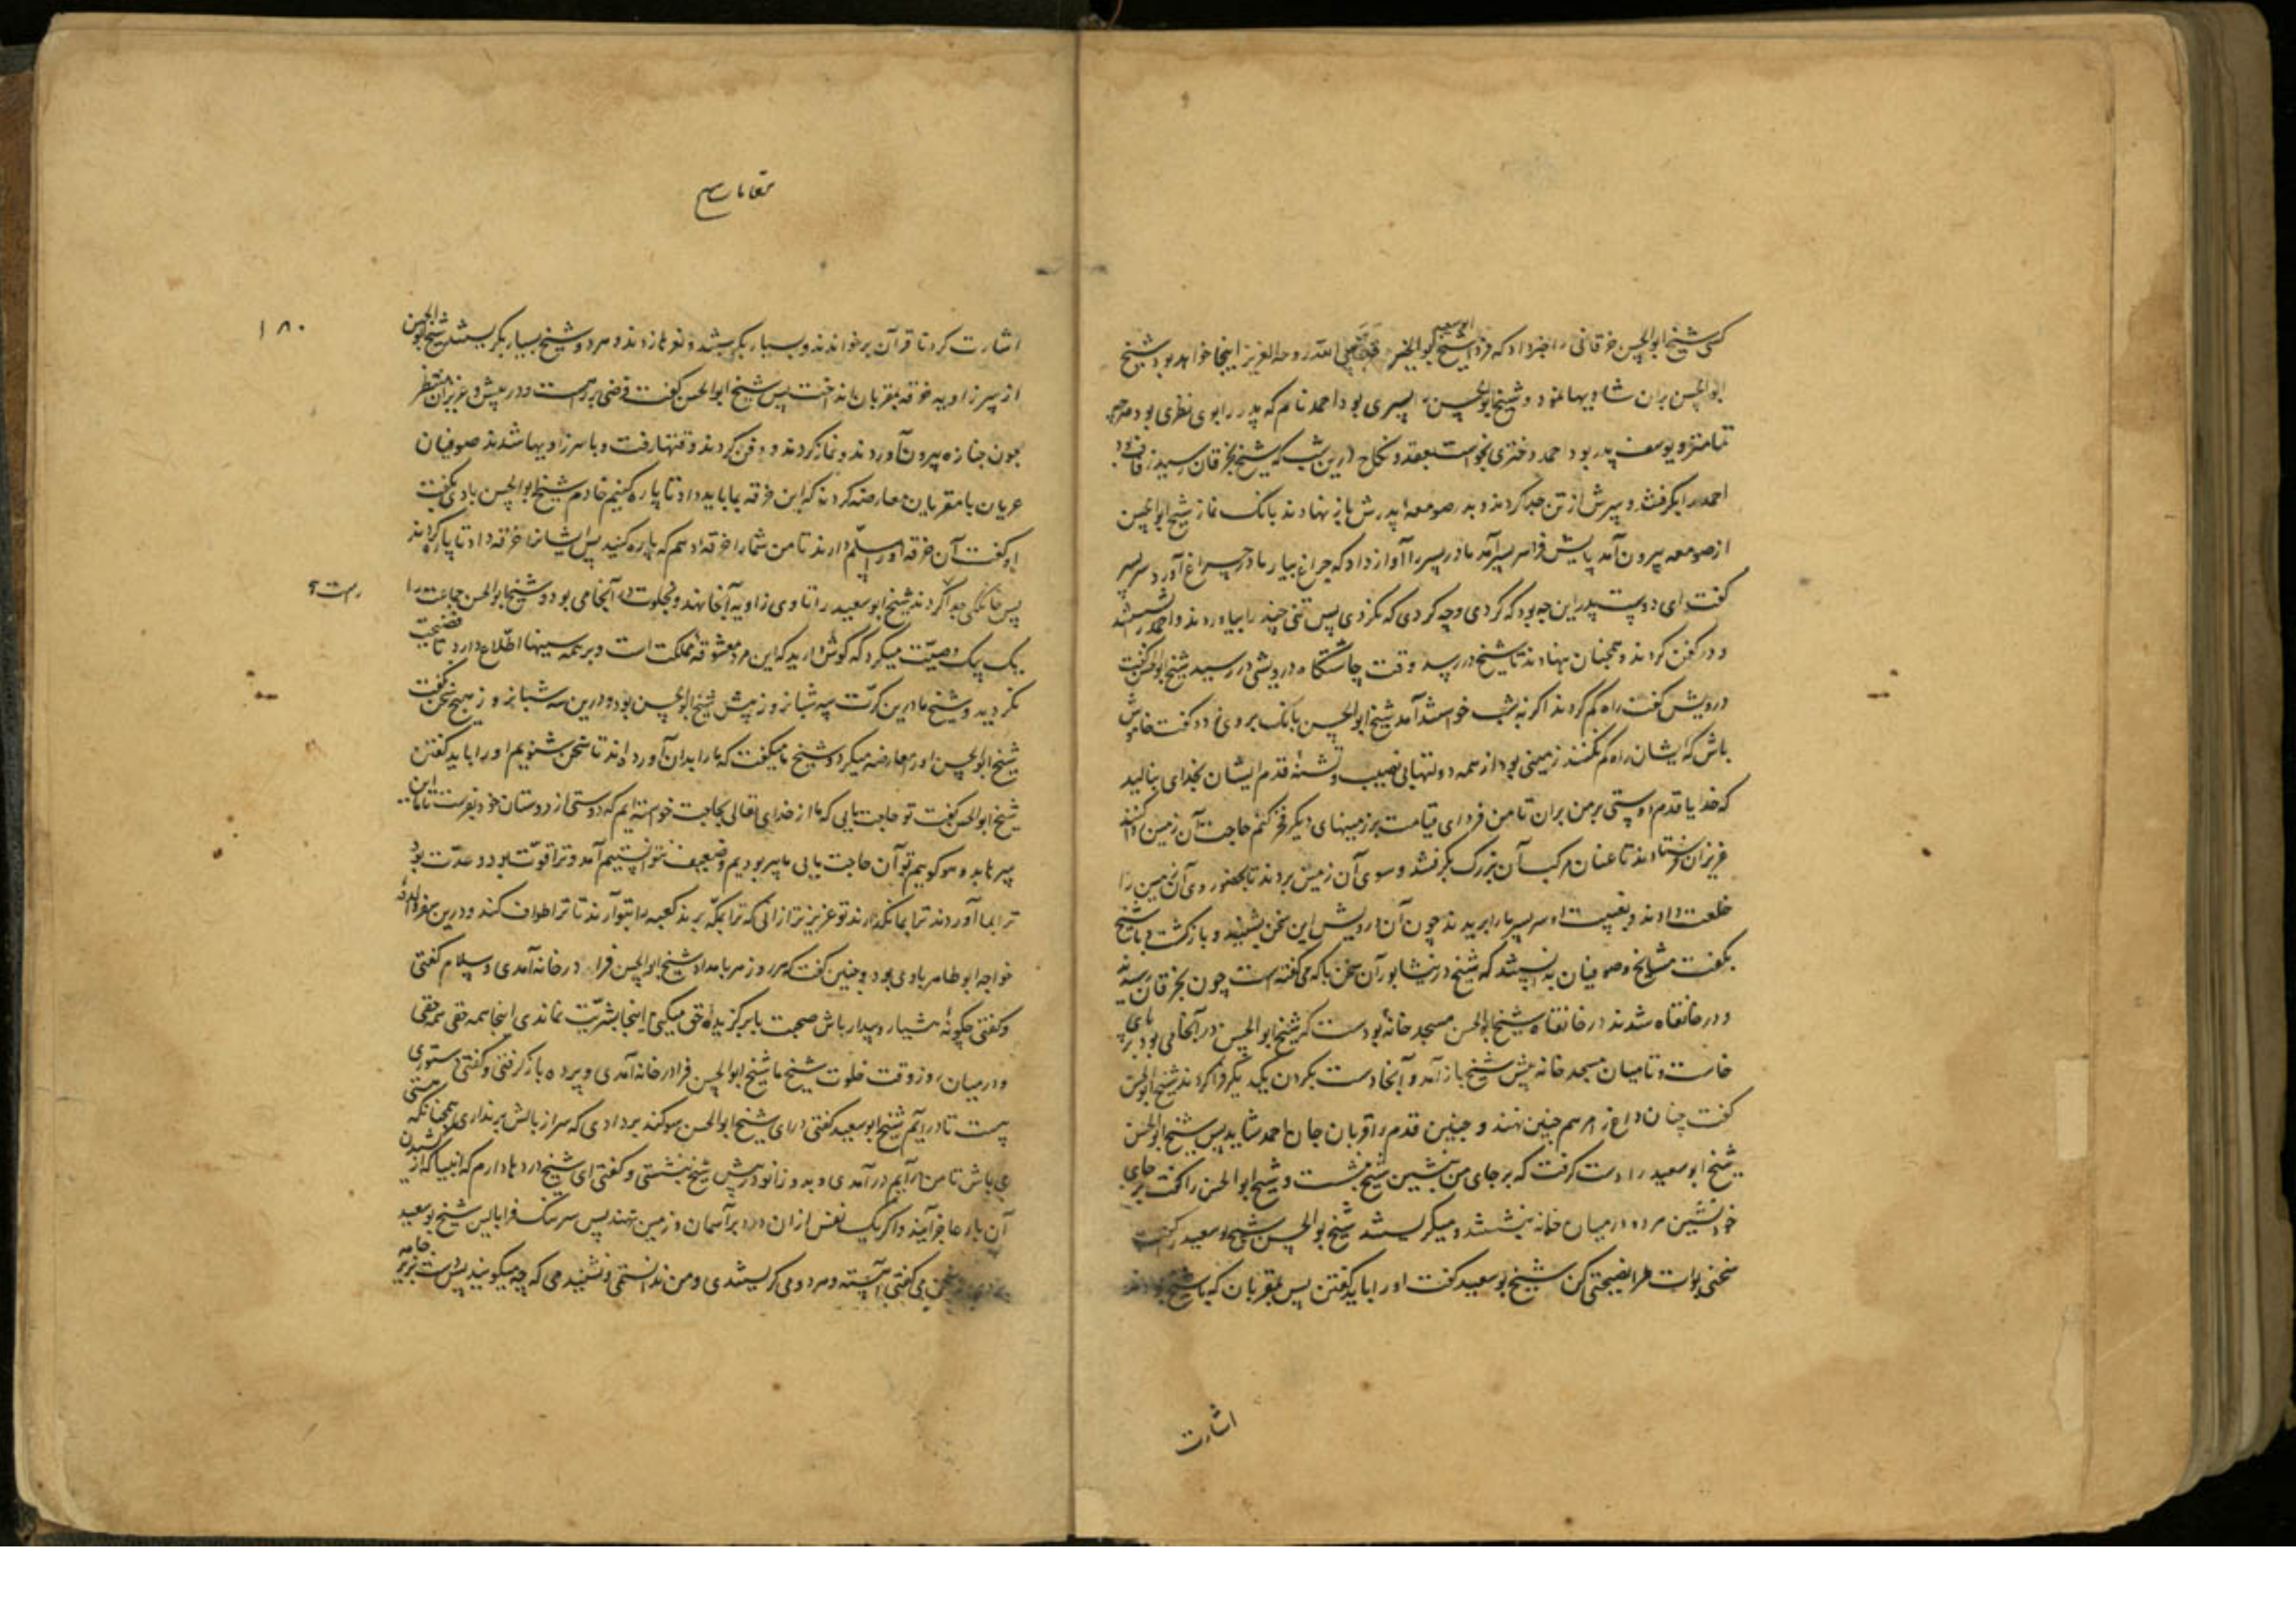 کسی شیخ ابوالحسن خرقانی را خبر داد که فردا شیخ ابوسعید ابوالخیر قدس الله روحه العزیز اینجا خواهد بود شیخ
ابوالحسن بدان شادیها نمود و شیخ ابوالحسن را پسری بود احمد نام که پدر را بوی نظری بود هرچه
تمامتر و یوسف پدر بود احمد دختری بخواست بعقد و نکاح درین شب که شیخ بخرقان رسید زفاف بود
احمد را بگرفتند و سرش از تن جدا کردند و بدر صومعه پدرش باز نهادند بانگ نماز شیخ ابوالحسن
از صومعه بیرون آمد پایش فراسر پسر آمد مادر پسر را آواز داد که چراغ بیار مادر چراغ آورد سر پسر
گفت ای دوست پدر این چه بود که کردی و چه کردی که نکردی پس تنی چند را بیاوردند و احمد را بشستند
و در کفن کردند و همچنان بنهادند تا شیخ در رسد وقت چاشتگاه درویشی در رسید شیخ ابوالحسن گفت
درویش گفت راه گم کردند اگر نه شب خواستند آمد شیخ ابوالحسن بانگ بر وی زد و گفت خاموش
باش که ایشان راه گم نکنند زمینی بود از همه دولتها بی نصیب و تشنه قدم ایشان بخدای بنالید
که خدایا قدم دوستی بر من بران تا من فردای قیامت بر زمینهای دیگر فخر کنم حاجت آن زمین روا کردند
عزیزان فرستادند تا عنان مرکب آن بزرگ بگرفتند و سوی آن زمین بردند تا بحضور وی آن زمین را
خلعت دادند و بغیبت او سر پسر ما را بریدند چون آن درویش این سخن بشنید و بازگشت و با شیخ
بگفت مشایخ و صوفیان بدانستند که شیخ در نیشابور آن سخن با که می گفته است چون بخرقان رسیدند
و در خانقاه شدند در خانقاه شیخ ابوالحسن مسجد خانهٔ بودست که شیخ ابوالحسن در آنجا می بود بر پای
خاست و تا میان مسجد خانه پیش شیخ باز آمد و آنجا دست بگردن یکدیگر فرا کردند شیخ ابوالحسن
گفت چنان داغ را مرهم چنین نهند و چنین قدم را قربان جان احمد شاید پس شیخ ابوالحسن
شیخ ابوسعید را دست گرفت که بر جای من بنشین شیخ ننشست و شیخ ابوالحسن را گفت بر جای
خود نشین هر دو در میان خانه بنشستند و میگریستند شیخ بوالحسن شیخ بوسعید را گفت
سخنی بگو مرا نصیحتی کن شیخ بوسعید گفت او را باید گفتن پس مقریان که با شیخ بودند
اشارت
مقامات
۱۸۰
اشارت کرد تا قرآن برخواندند و بسیار بگریستند و نعرها زدند و هر دو شیخ بسیار بگریستند شیخ ابوالحسن
از سر زاویه خرقه بمقریان انداخت پس شیخ ابوالحسن گفت فرضی در پیش است و عزیزان منتظر
چون جنازه بیرون آوردند و نماز کردند و دفن کردند وقتها رفت و با سر زاویها شدند صوفیان
عریان با مقریان معارضه کردند که این خرقه ما را باید داد تا پاره کنیم خادم شیخ ابوالحسن با وی بگفت
او گفت آن خرقه او را مسلم دارند تا من شما را خرقه دهم که پاره کنید پس ایشانرا خرقه داد تا پاره کردند
پس خانگکی جدا کردند شیخ ابوسعید را تا وی زاویه آنجا نهد و بخلوت در آنجا می بود و شیخ ابوالحسن جماعت را
یک یک وصیت میکرد که گوش دارید که این مرد معشوقه مملکت است و بر همه سینها اطلاع دارد تا فضیحت
نگردید و شیخ ما درین کرت سه شبانروز پیش شیخ ابوالحسن بود و درین سه شبانروز هیچ سخن نگفت
شیخ ابوالحسن او را معارضه میکرد و شیخ ما میگفت که ما را بدان آورده اند تا سخن شنویم او را باید گفتن
شیخ ابوالحسن گفت تو حاجت مایی که ما از خدای تعالی بحاجت خواسته ایم که دوستی از دوستان خود بفرست تا ما این
سرها بدو گوییم تو آن حاجت مایی ما پیر بودیم و ضعیف نتوانستیم آمد و ترا قوت بود و عدت بود
ترا بما آوردند ترا بمکه نگذارند تو عزیزتر ازانی که ترا بمکه برند کعبه را بتو آرند تا ترا طواف کند و درین سفر والده
خواجه ابوطاهر با وی بود و چنین گفت که هر روز هر بامداد شیخ ابوالحسن فرا در خانه آمدی و سلام گفتی
و گفتی چگونه ای هشیار و بیدار باش صحبت با برگزیدهٔ حق میکنی اینجا بشریت نماندی اینجا همه حقی همه حقی
و در میان روز وقت خلوت شیخ ما شیخ ابوالحسن فرا در خانه آمدی و پرده باز گرفتی و گفتی دستوری
هست تا درآیم شیخ ابوسعید گفتی درای شیخ ابوالحسن سوگند بر دادی که سر از بالش برنداری همچنانکه
می باش تا من درآیم درآمدی و بدو زانو در پیش شیخ بنشستی و گفتی ای شیخ دردها دارم که انبیا از کشیدن
آن بار عاجز آیند و اگر یک نفس ازان درد برآرم آسمان و زمین تهند پس سر نیک فرا بالین شیخ بوسعید
سخن می گفتی آهسته و هر دو می گریستندی و من ندانستمی و نشنیدمی که چه میگویند پس دست بزیر جامه